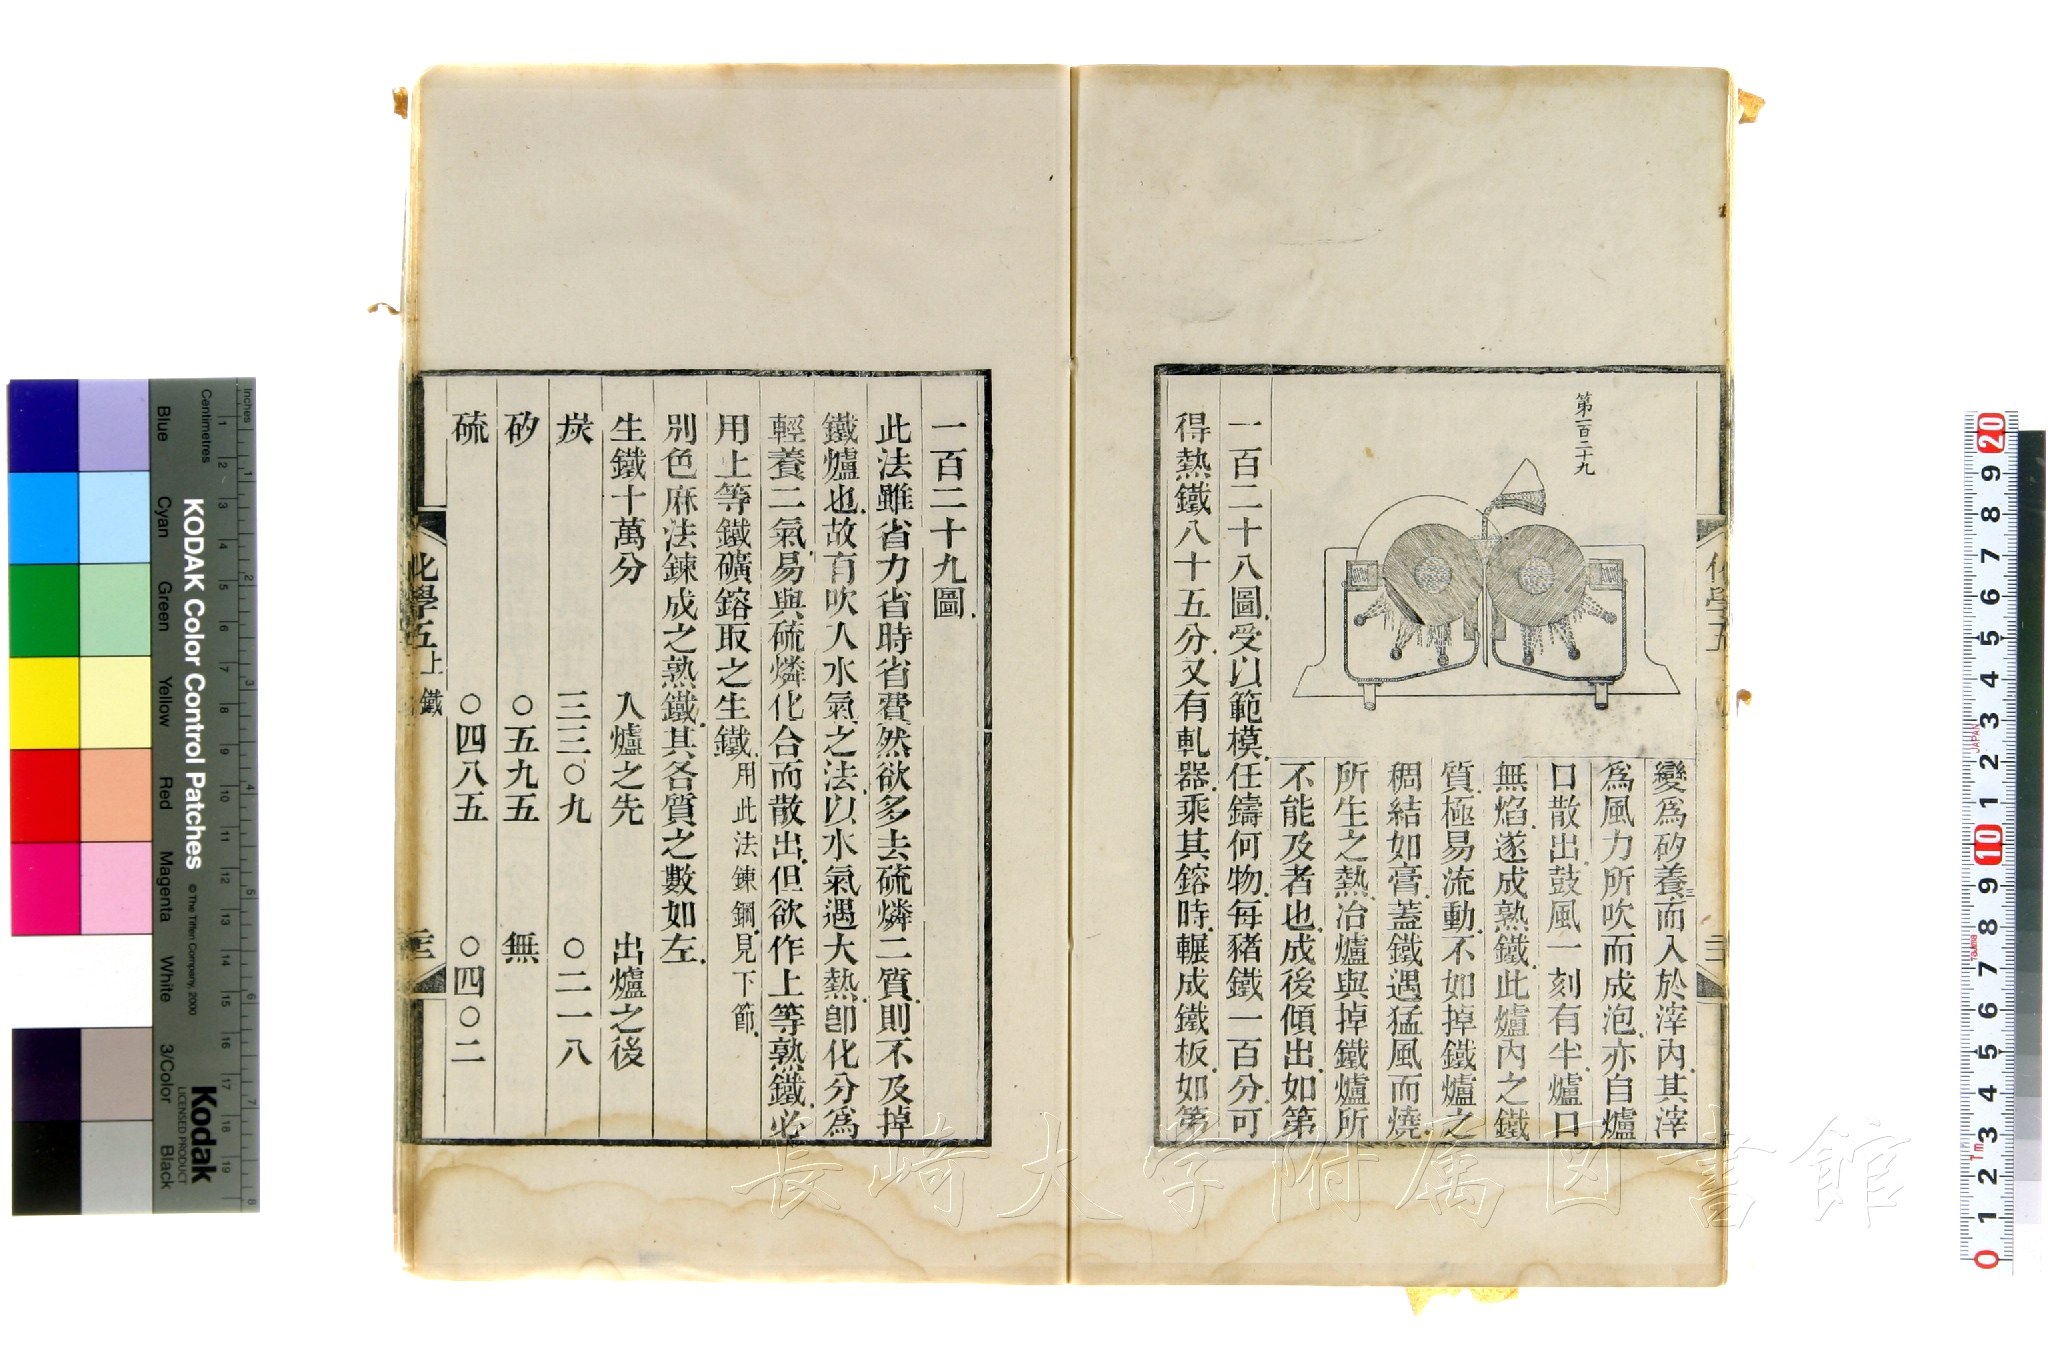 第一百二十九
變爲矽養而入於滓內其滓
爲風力所吹而成泡亦自爐
口散出鼓風一刻有半爐口
無焰遂成熟鐵此爐內之鐵
質極易流動不如掉鐵爐之
稠結如膏蓋鐵遇猛風而燒
所生之熱冶爐與掉鐵爐所
不能及者也成後傾出如第
一百二十八圖受以範模任鑄何物每豬鐵一百分可
得熟鐵八十五分又有軋器乘其鎔時輾成鐵板如第
一百二十九圖
此法雖省力省時省費然欲多去硫燐二質則不及掉
鐵爐也故有吹入水氣之法以水氣遇大熱卽化分爲
輕養二氣易與硫燐化合而散出但欲作上等熟鐵必
用上等鐵礦鎔取之生鐵用此法鍊鋼見下節
別色麻法鍊成之熟鐵其各質之數如左
生鐵十萬分 入爐之先 出爐之後
炭 三三〇九 〇二一八
矽 〇五九五 無
硫 〇四八五 〇四〇二
化學五上 鐵
長崎大学附属図書館
KODAK Color Control Patches
© The Tiffen Company, 2000
Kodak
LICENSED PRODUCT
Inches
Centimetres
Blue
Cyan
Green
Yellow
Red
Magenta
White
3/Color
Black
JAPAN